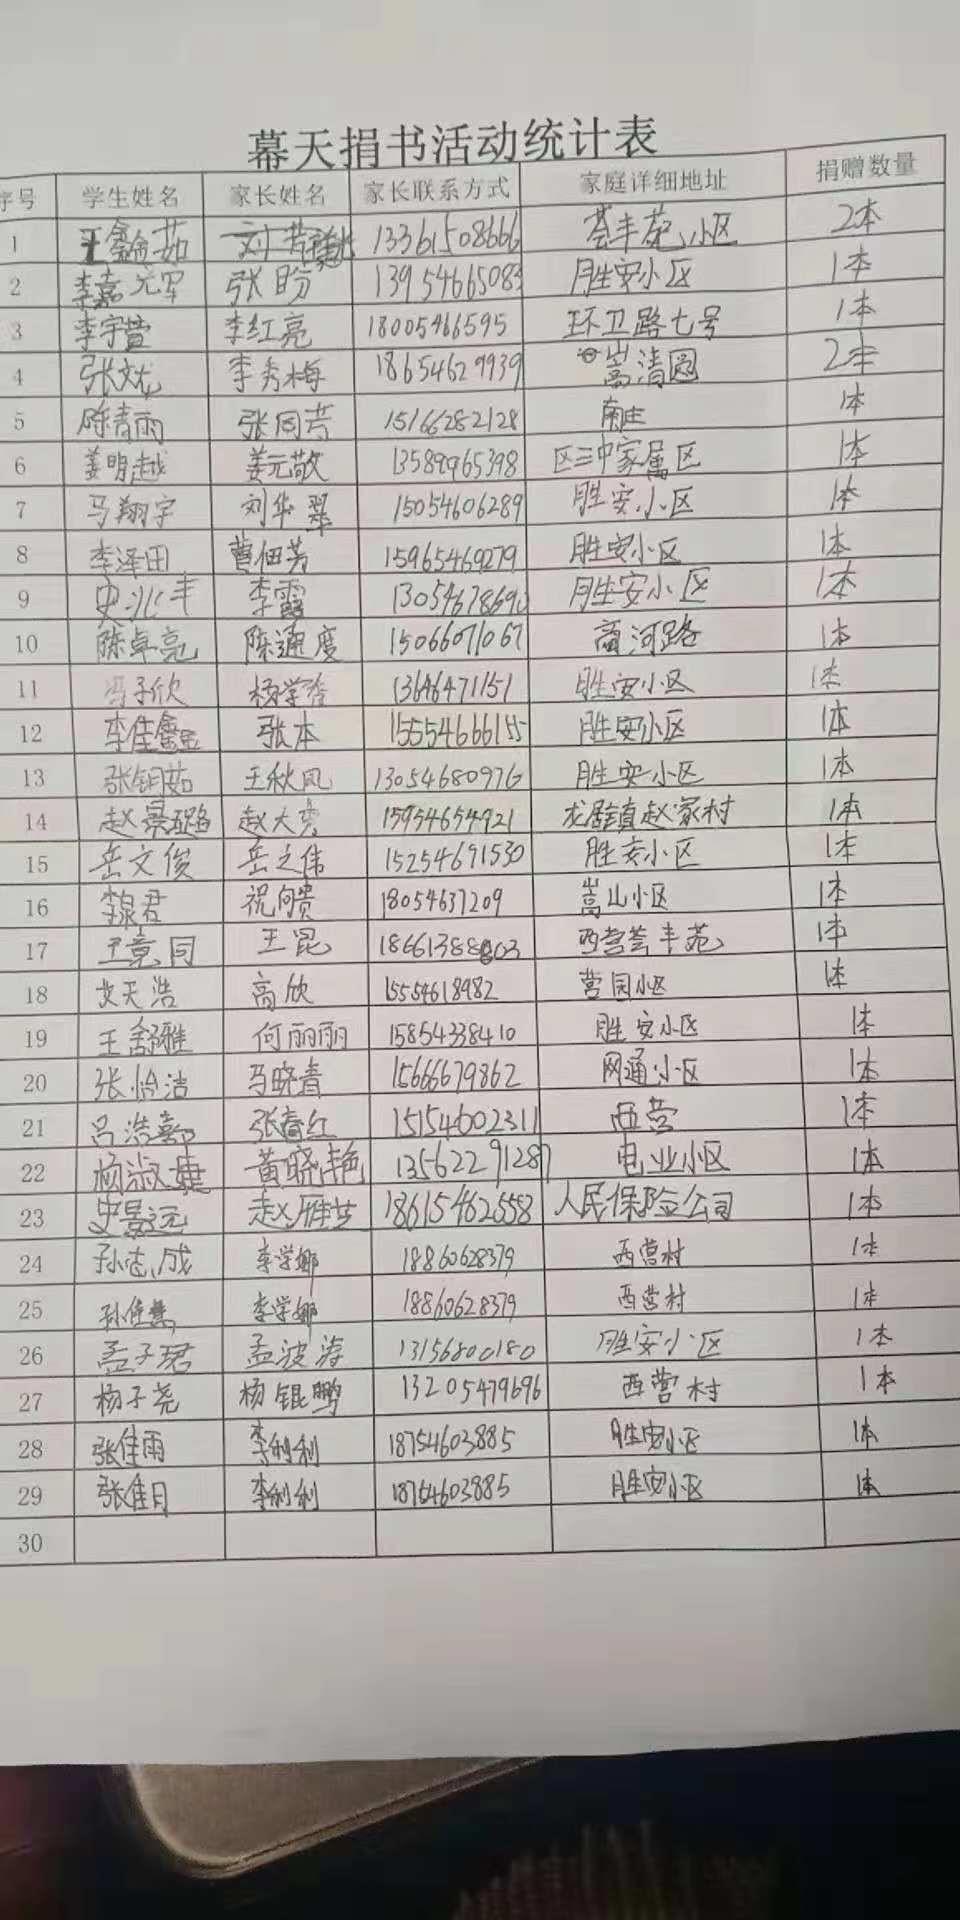 幕天捐书活动统计表
序号 学生姓名 家长姓名 家长联系方式 家庭详细地址 捐赠数量
1 王鑫茹 刘芳 13361508666 荟丰苑小区 2本
2 李嘉 张盼 13954665083 胜安小区 1本
3 李宇萱 李红亮 18005466595 环卫路七号 1本
4 张文龙 李秀梅 18654629939 嵩清园 2本
5 陈青雨 张同芳 15166282128 南庄 1本
6 姜明越 姜元敬 13589965398 区三中家属区 1本
7 马翔宇 刘华翠 15054606289 胜安小区 1本
8 李泽田 曹佃芳 15965469279 胜安小区 1本
9 史兆丰 李霞 13054678690 胜安小区 1本
10 陈卓亮 陈速度 15066071067 商河路 1本
11 冯子欣 杨学香 13646471151 胜安小区 1本
12 李佳鑫 张本 15554666155 胜安小区 1本
13 张钥茹 王秋凤 13054680976 胜安小区 1本
14 赵景璐 赵大勇 15954654921 龙居镇赵家村 1本
15 岳文俊 岳之伟 15254691530 胜安小区 1本
16 李泉君 祝向贵 18054637209 嵩山小区 1本
17 王竟同 王昆 18661388803 西营荟丰苑 1本
18 艾天浩 高欣 15554618982 营园小区 1本
19 王舒雅 何丽丽 15854338410 胜安小区 1本
20 张怡洁 马晓青 15666679862 网通小区 1本
21 吕浩 张春红 15154602311 西营 1本
22 杨淑婕 黄晓艳 13562291287 电业小区 1本
23 史景远 赵雁芝 18615462558 人民保险公司 1本
24 孙志成 李学娜 18860628379 西营村 1本
25 孙佳慧 李学娜 18860628379 西营村 1本
26 孟子珺 孟波涛 13156800180 胜安小区 1本
27 杨子尧 杨锟鹏 13205479696 西营村 1本
28 张佳雨 李利利 18754603885 胜安小区 1本
29 张佳月 李利利 18754603885 胜安小区 1本
30